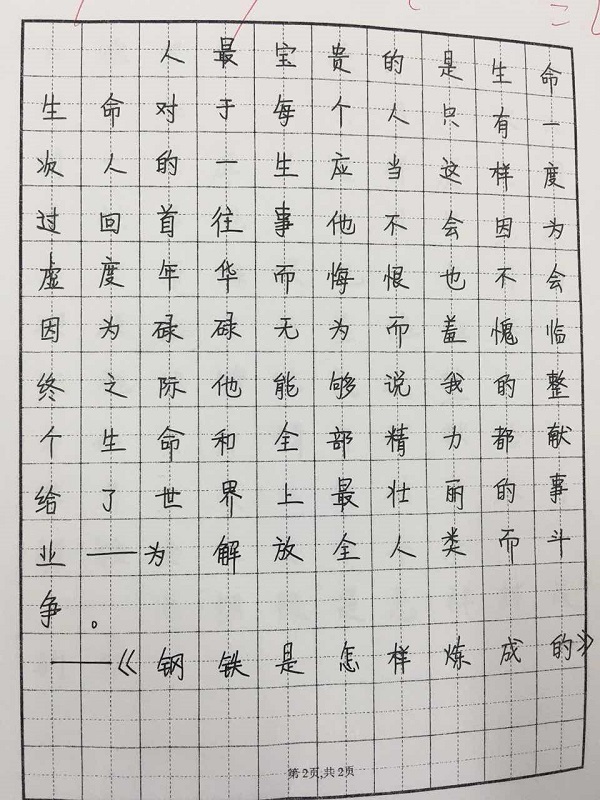 人最宝贵的是生命
生命对于每个人只有一
次人的一生应当这样度
过回首往事他不会因为
虚度年华而悔恨也不会
因为碌碌无为而羞愧临
终之际他能够说我的整
个生命和全部精力都献
给了世界上最壮丽的事
业——为解放全人类而斗
争。
——《钢铁是怎样炼成的》
第2页,共2页